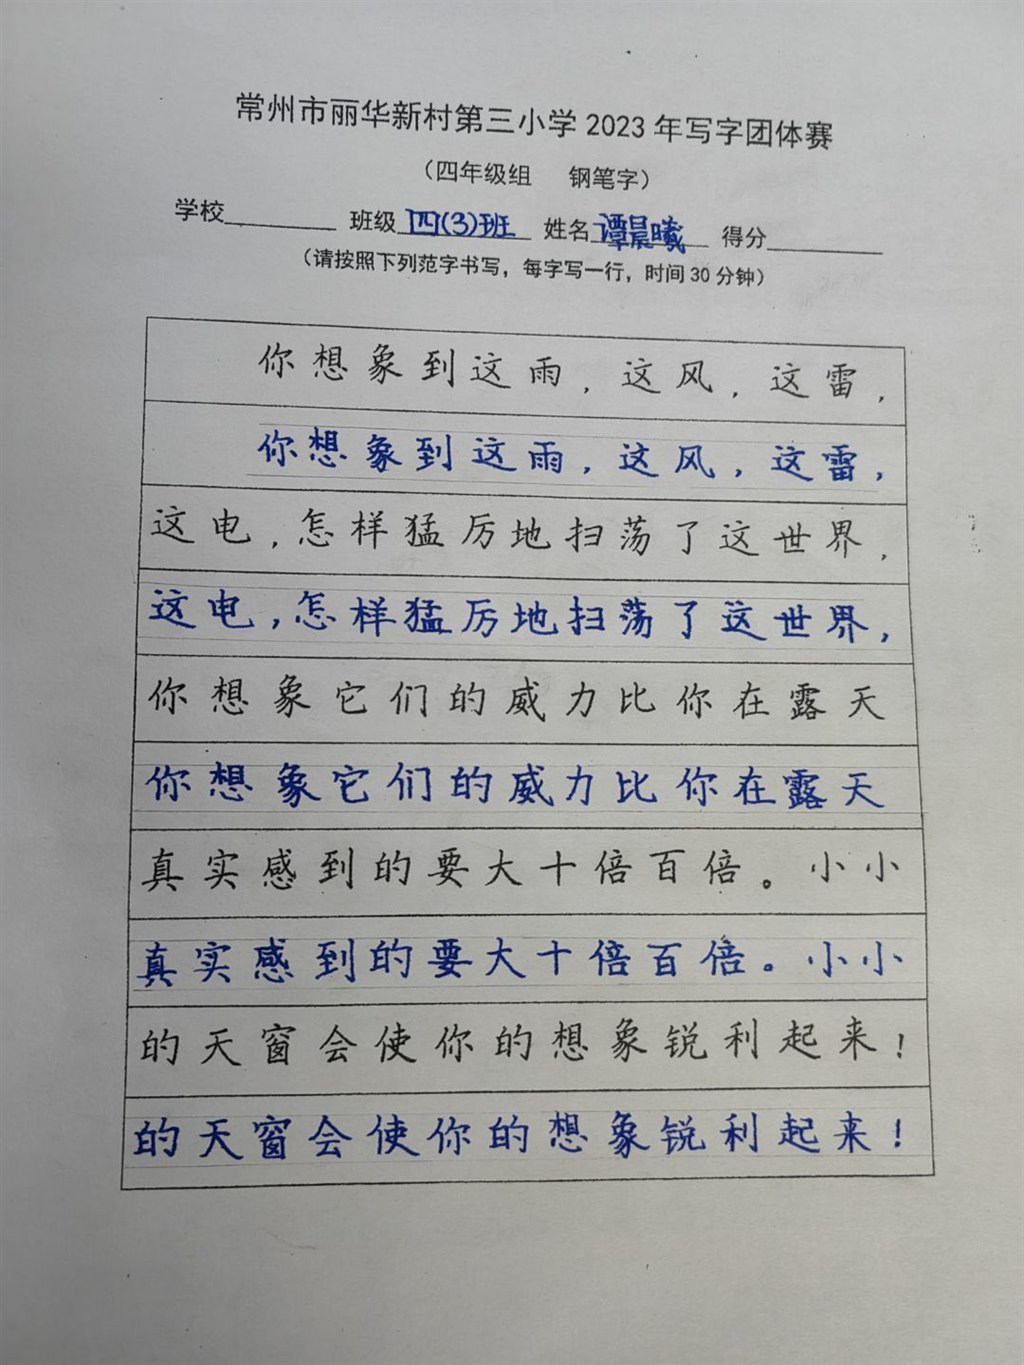 常州市丽华新村第三小学2023年写字团体赛
（四年级组 钢笔字）
学校 班级四(3)班 姓名谭晨曦 得分
（请按照下列范字书写，每字写一行，时间30分钟）
你想象到这雨，这风，这雷，
你想象到这雨，这风，这雷，
这电，怎样猛厉地扫荡了这世界，
这电，怎样猛厉地扫荡了这世界，
你想象它们的威力比你在露天
你想象它们的威力比你在露天
真实感到的要大十倍百倍。小小
真实感到的要大十倍百倍。小小
的天窗会使你的想象锐利起来！
的天窗会使你的想象锐利起来！